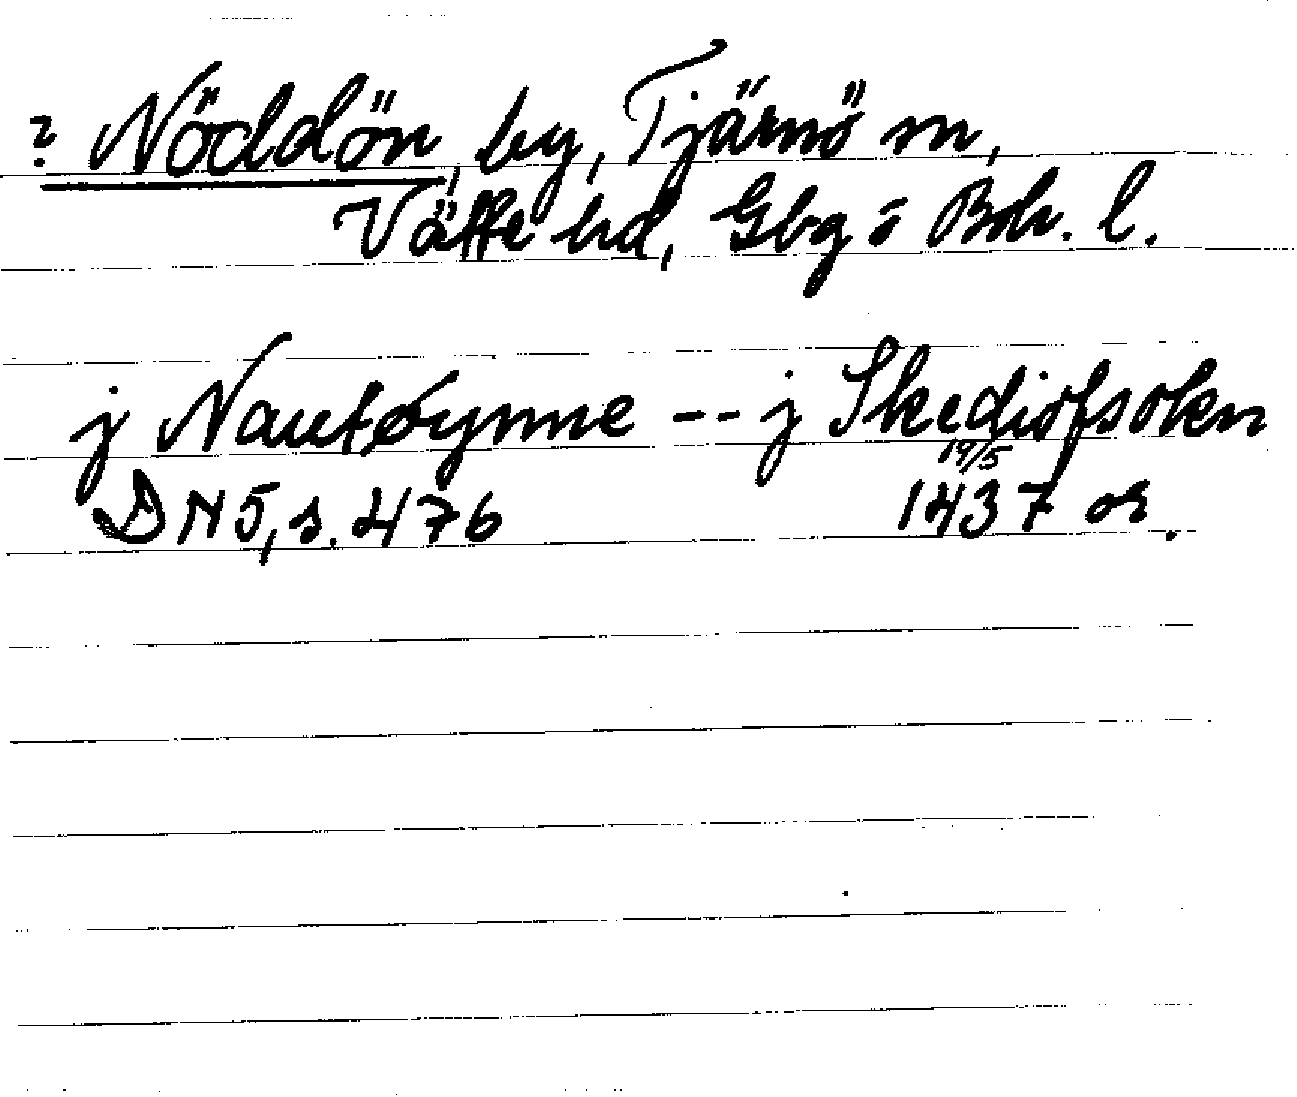 ? Nöddön, by, Tjärnö sn,
Vätte hd, Gbg o Boh. l.
j Nautøynne -- j Skediofsokn
19/5
DN 5, s. 476 1437 or.